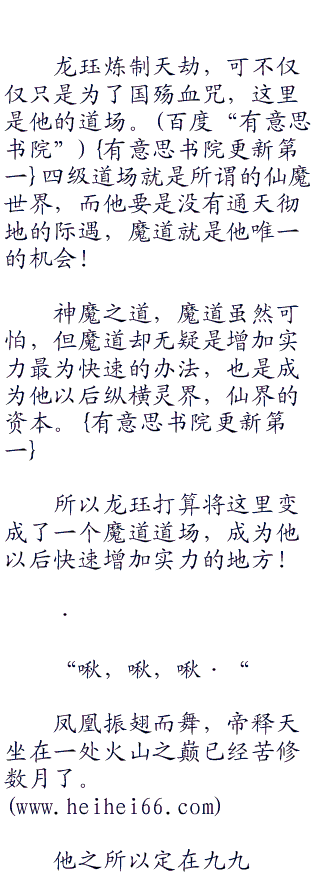 龙珏炼制天劫，可不仅
仅只是为了国殇血咒，这里
是他的道场。(百度“有意思
书院”){有意思书院更新第
一}四级道场就是所谓的仙魔
世界，而他要是没有通天彻
地的际遇，魔道就是他唯一
的机会！
神魔之道，魔道虽然可
怕，但魔道却无疑是增加实
力最为快速的办法，也是成
为他以后纵横灵界，仙界的
资本。{有意思书院更新第
一}
所以龙珏打算将这里变
成了一个魔道道场，成为他
以后快速增加实力的地方！
·
“啾，啾，啾·“
凤凰振翅而舞，帝释天
坐在一处火山之巅已经苦修
数月了。
(www.heihei66.com)
他之所以定在九九